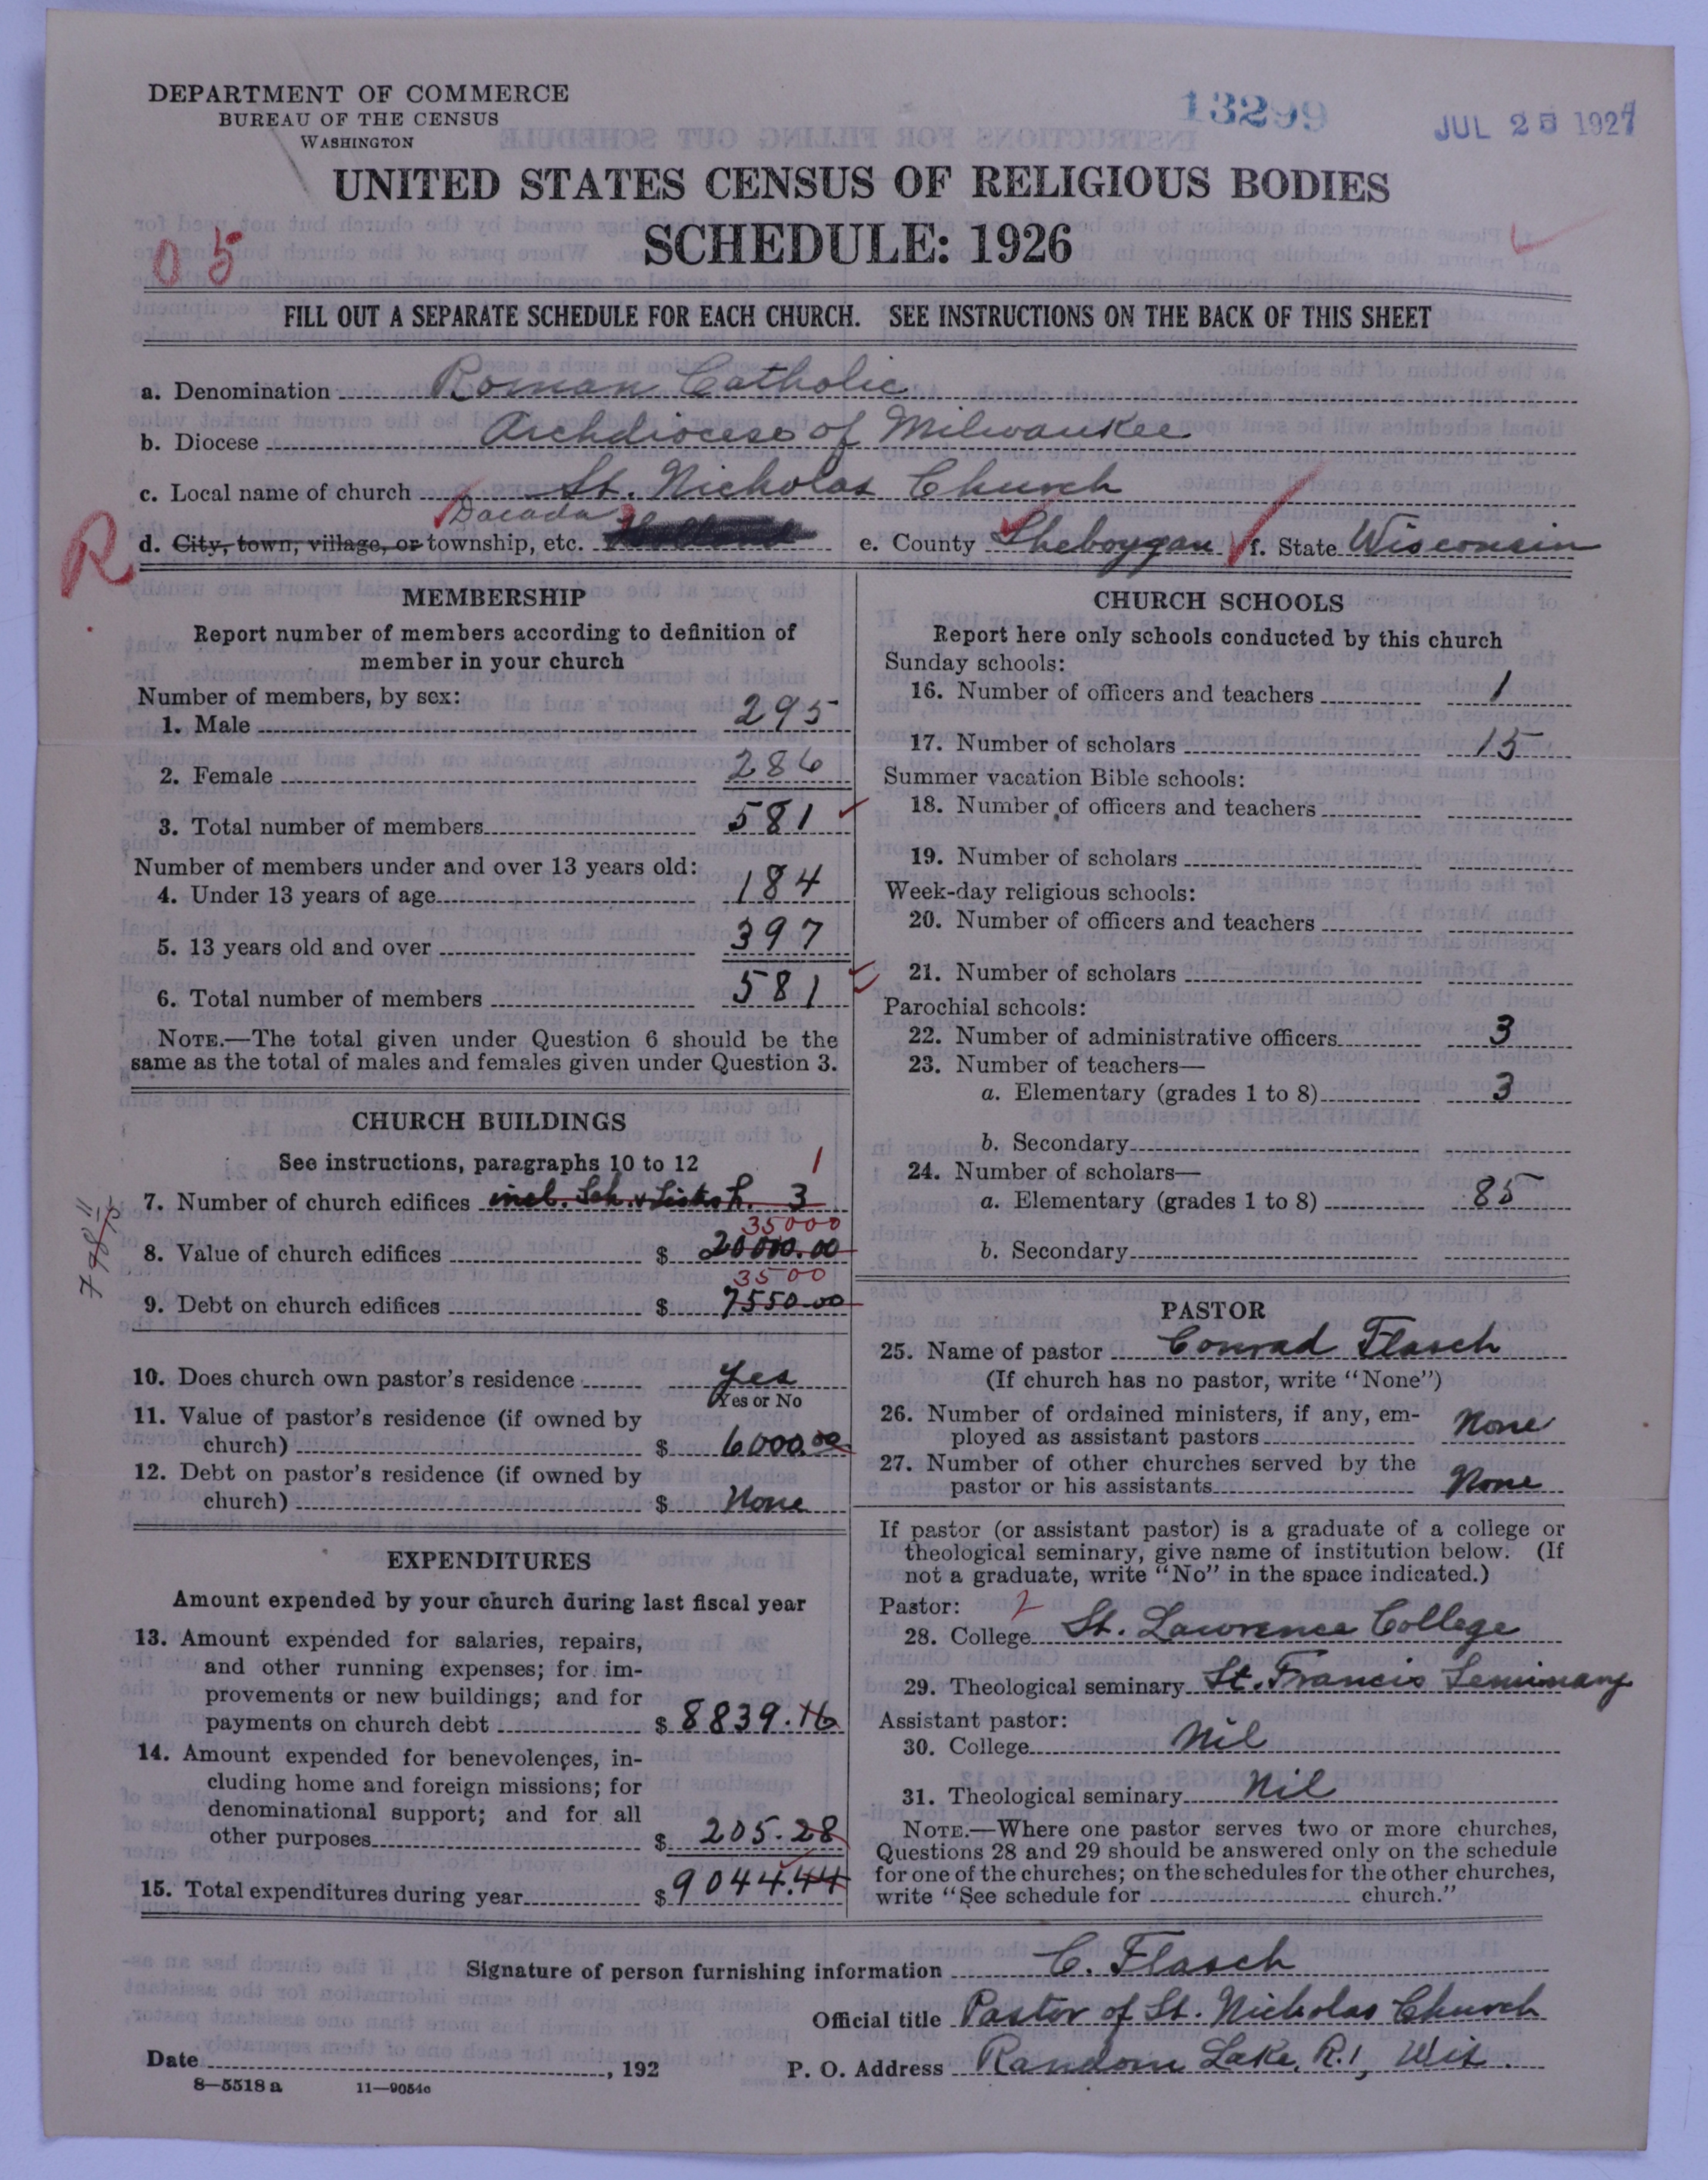 DEPARTMENT OF COMMERCE
BUREAU OF THE CENSUS
WASHINGTON
13299
JUL 25 1927
UNITED STATES CENSUS OF RELIGIOUS BODIES
SCHEDULE: 1926
05
FILL OUT A SEPARATE SCHEDULE FOR EACH CHURCH. SEE INSTRUCTIONS ON THE BACK OF THIS SHEET
a. Denomination Roman Catholic
b. Diocese Archdiocese of Milwaukee
c. Local name of church St. Nicholas Church
Dacada
R
d. City, town, village, or township, etc. Holland e. County Sheboygan f. State Wisconsin
MEMBERSHIP
Report number of members according to definition of
member in your church
Number of members, by sex:
1. Male 295
2. Female 286
3. Total number of members 581
Number of members under and over 13 years old:
4. Under 13 years of age 184
5. 13 years old and over 397
6. Total number of members 581
NOTE.—The total given under Question 6 should be the
same as the total of males and females given under Question 3.
CHURCH BUILDINGS
See instructions, paragraphs 10 to 12
1
7. Number of church edifices incl. Sch. & Sisters h. 3
35000
8. Value of church edifices $ 20000.00
3500
9. Debt on church edifices $ 7550.00
10. Does church own pastor's residence Yes
Yes or No
11. Value of pastor's residence (if owned by
church) $ 6000.00
12. Debt on pastor's residence (if owned by
church) $ None
EXPENDITURES
Amount expended by your church during last fiscal year
13. Amount expended for salaries, repairs,
and other running expenses; for im-
provements or new buildings; and for
payments on church debt $ 8839.16
14. Amount expended for benevolences, in-
cluding home and foreign missions; for
denominational support; and for all
other purposes $ 205.28
15. Total expenditures during year $ 9044.44
CHURCH SCHOOLS
Report here only schools conducted by this church
Sunday schools:
16. Number of officers and teachers 1
17. Number of scholars 15
Summer vacation Bible schools:
18. Number of officers and teachers
19. Number of scholars
Week-day religious schools:
20. Number of officers and teachers
21. Number of scholars
Parochial schools:
22. Number of administrative officers 3
23. Number of teachers—
a. Elementary (grades 1 to 8) 3
b. Secondary
24. Number of scholars—
a. Elementary (grades 1 to 8) 85
b. Secondary
PASTOR
25. Name of pastor Conrad Flasch
(If church has no pastor, write "None")
26. Number of ordained ministers, if any, em-
ployed as assistant pastors None
27. Number of other churches served by the
pastor or his assistants None
If pastor (or assistant pastor) is a graduate of a college or
theological seminary, give name of institution below. (If
not a graduate, write "No" in the space indicated.)
Pastor: 2
28. College St. Lawrence College
29. Theological seminary St. Francis Seminary
Assistant pastor:
30. College Nil
31. Theological seminary Nil
NOTE.—Where one pastor serves two or more churches,
Questions 28 and 29 should be answered only on the schedule
for one of the churches; on the schedules for the other churches,
write "See schedule for church."
Signature of person furnishing information C. Flasch
Official title Pastor of St. Nicholas Church
Date , 192 P. O. Address Random Lake, R.1, Wis.
8—5518a 11—9054c